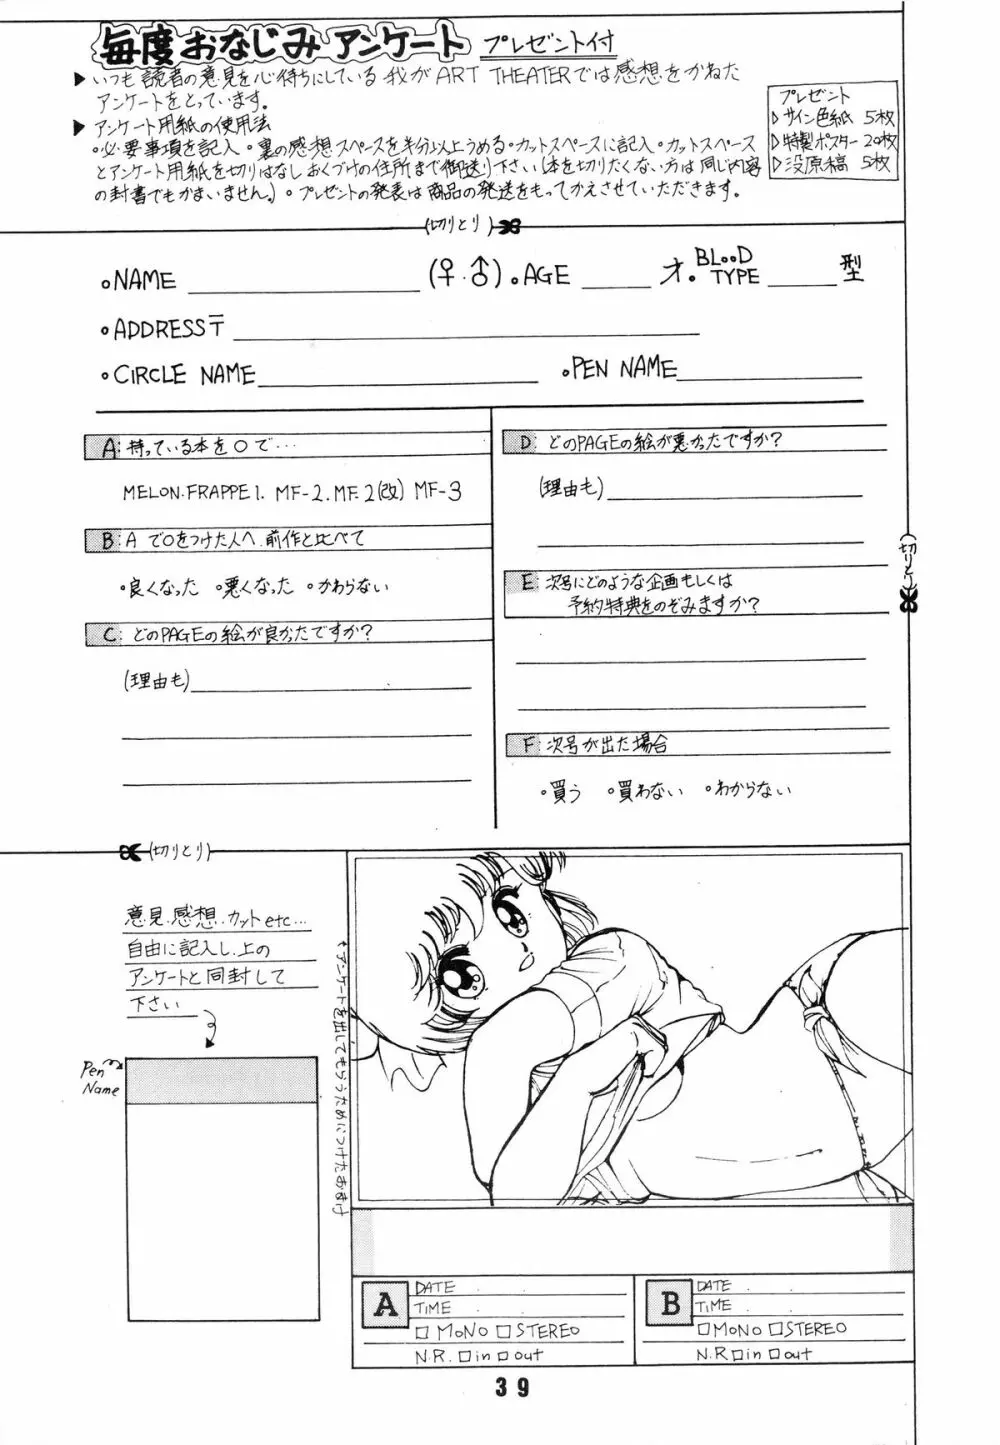 毎度おなじみアンケート プレゼント付
▶いつも読者の意見を心待ちにしている我がART THEATERでは感想をかねた
アンケートをとっています。
▶アンケート用紙の使用法
・必要事項を記入・裏の感想スペースを半分以上うめる・カットスペースに記入・カットスペース
とアンケート用紙を切りはなしおくづけの住所まで御送り下さい(本を切りたくない方は同じ内容
の封書でもかまいません。)・プレゼントの発表は商品の発送をもってかえさせていただきます。
プレゼント
▷サイン色紙 5枚
▷特製ポスター 20枚
▷没原稿 5枚
(切りとり)
・NAME (♀・♂)・AGE 才・BLOOD TYPE 型
・ADDRESS〒
・CIRCLE NAME ・PEN NAME
A:持っている本を○で…
MELON.FRAPPE1. MF-2.MF.2(改) MF-3
B:Aで○をつけた人へ.前作と比べて
・良くなった ・悪くなった ・かわらない
C:どのPAGEの絵が良かったですか?
(理由も)
D:どのPAGEの絵が悪かったですか?
(理由も)
E:次号にどのような企画もしくは
予約特典をのぞみますか?
F:次号が出た場合
・買う ・買わない ・わからない
(切りとり)
(切りとり)
意見.感想.カットetc…
自由に記入し.上の
アンケートと同封して
下さい
Pen
Name
*アンケートを出してもらうためにつけたおまけ
A
DATE
TIME
□MONO □STEREO
N.R.□in□out
B
DATE
TIME
□MONO □STEREO
N.R□in□out
39